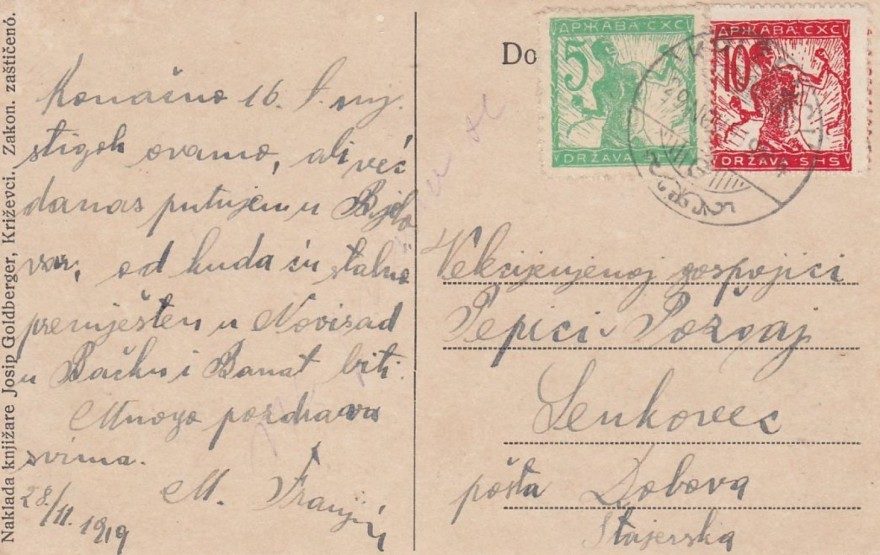 Naklada knjižare Josip Goldberger, Križevci. Zakon. zaštićeno.
Konačno 16. t. mj.
stigoh ovamo, ali već
danas putujem u Bjelo
var, od kuda ću stalno
premješten u Novisad
u Bačku i Banat biti.
Mnogo pozdrava
svima.
M.
28/11. 1919
Do
ДРЖАВА СХС
5
DRŽAVA
ДРЖАВА СХС
10
DRŽAVA SHS
Velecijenjenoj gospojici
Pepici Požgaj
Lenkovec
pošta Dobova
Štajerska